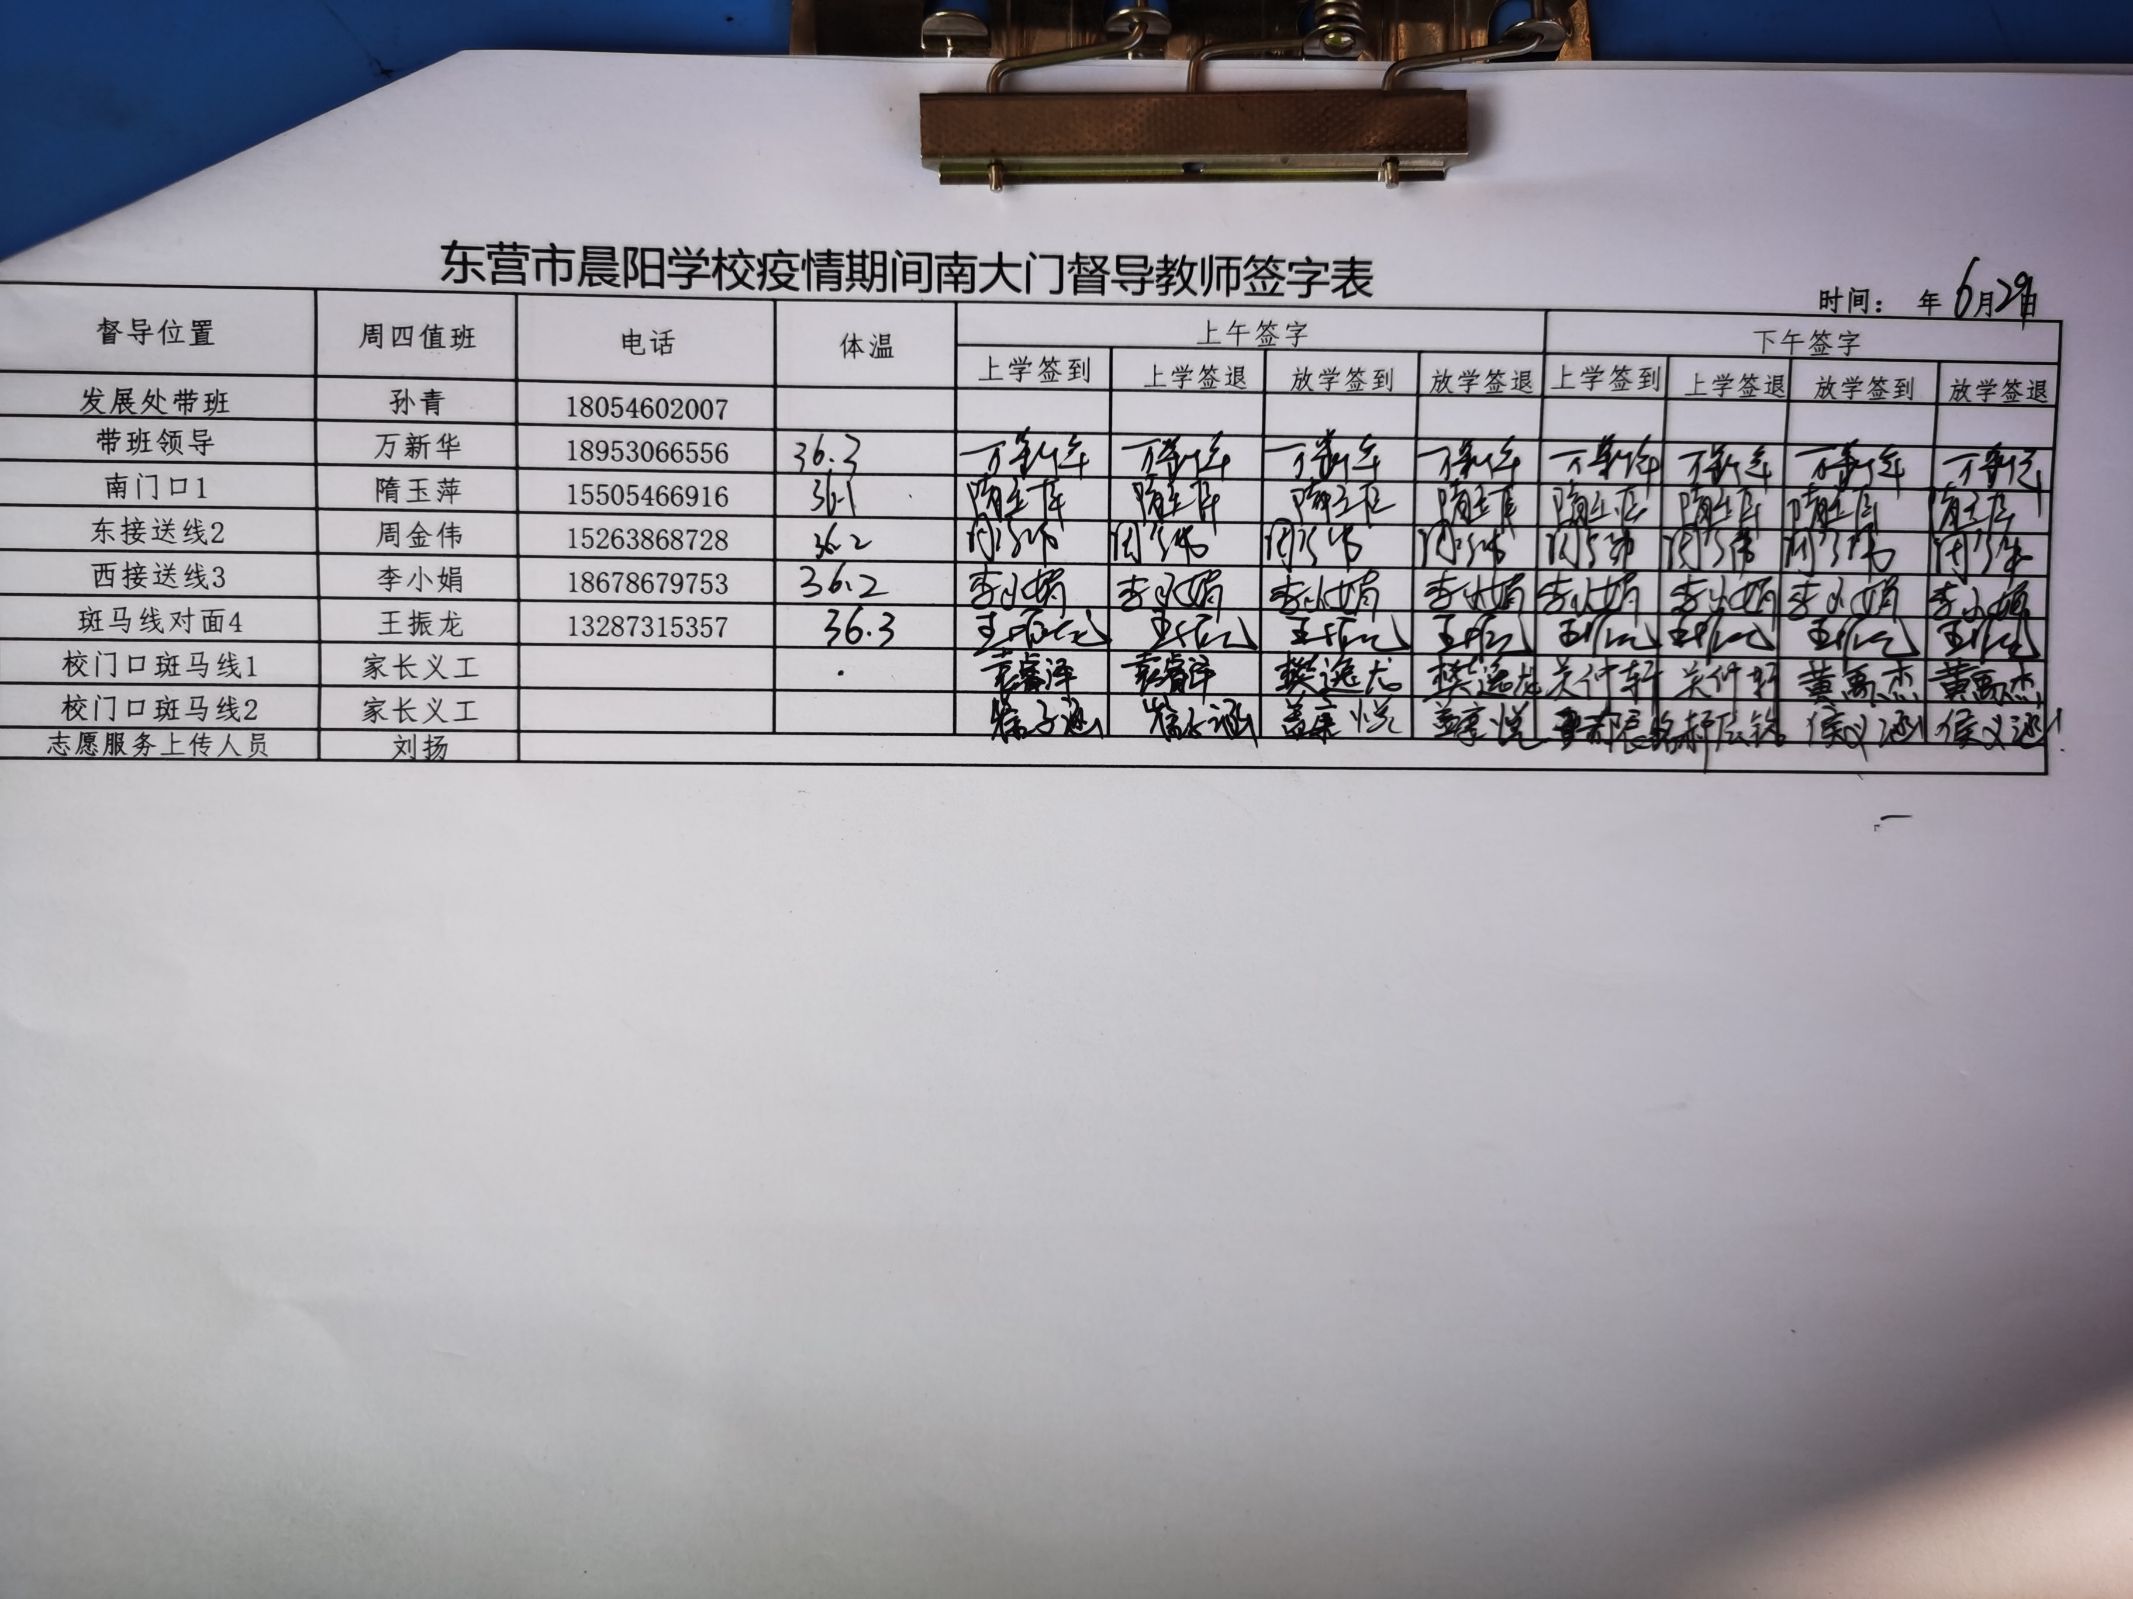 东营市晨阳学校疫情期间南大门督导教师签字表
时间： 年 6月29日
督导位置 周四值班 电话 体温 上午签字 下午签字
上学签到 上学签退 放学签到 放学签退 上学签到 上学签退 放学签到 放学签退
发展处带班 孙青 18054602007
带班领导 万新华 18953066556 36.3 万新华 万新华 万新华 万新华 万新华 万新华 万新华 万新华
南门口1 隋玉萍 15505466916 36.1 隋玉萍 隋玉萍 隋玉萍 隋玉萍 隋玉萍 隋玉萍 隋玉萍 隋玉萍
东接送线2 周金伟 15263868728 36.2 周金伟 周金伟 周金伟 周金伟 周金伟 周金伟 周金伟 周金伟
西接送线3 李小娟 18678679753 36.2 李小娟 李小娟 李小娟 李小娟 李小娟 李小娟 李小娟 李小娟
斑马线对面4 王振龙 13287315357 36.3 王振龙 王振龙 王振龙 王振龙 王振龙 王振龙 王振龙 王振龙
校门口斑马线1 家长义工 袁睿泽 袁睿泽 樊逸龙 樊逸龙 关仲轩 关仲轩 黄禹杰 黄禹杰
校门口斑马线2 家长义工 徐子涵 徐子涵 盖享悦 盖享悦 侯义涵 侯义涵
志愿服务上传人员 刘扬